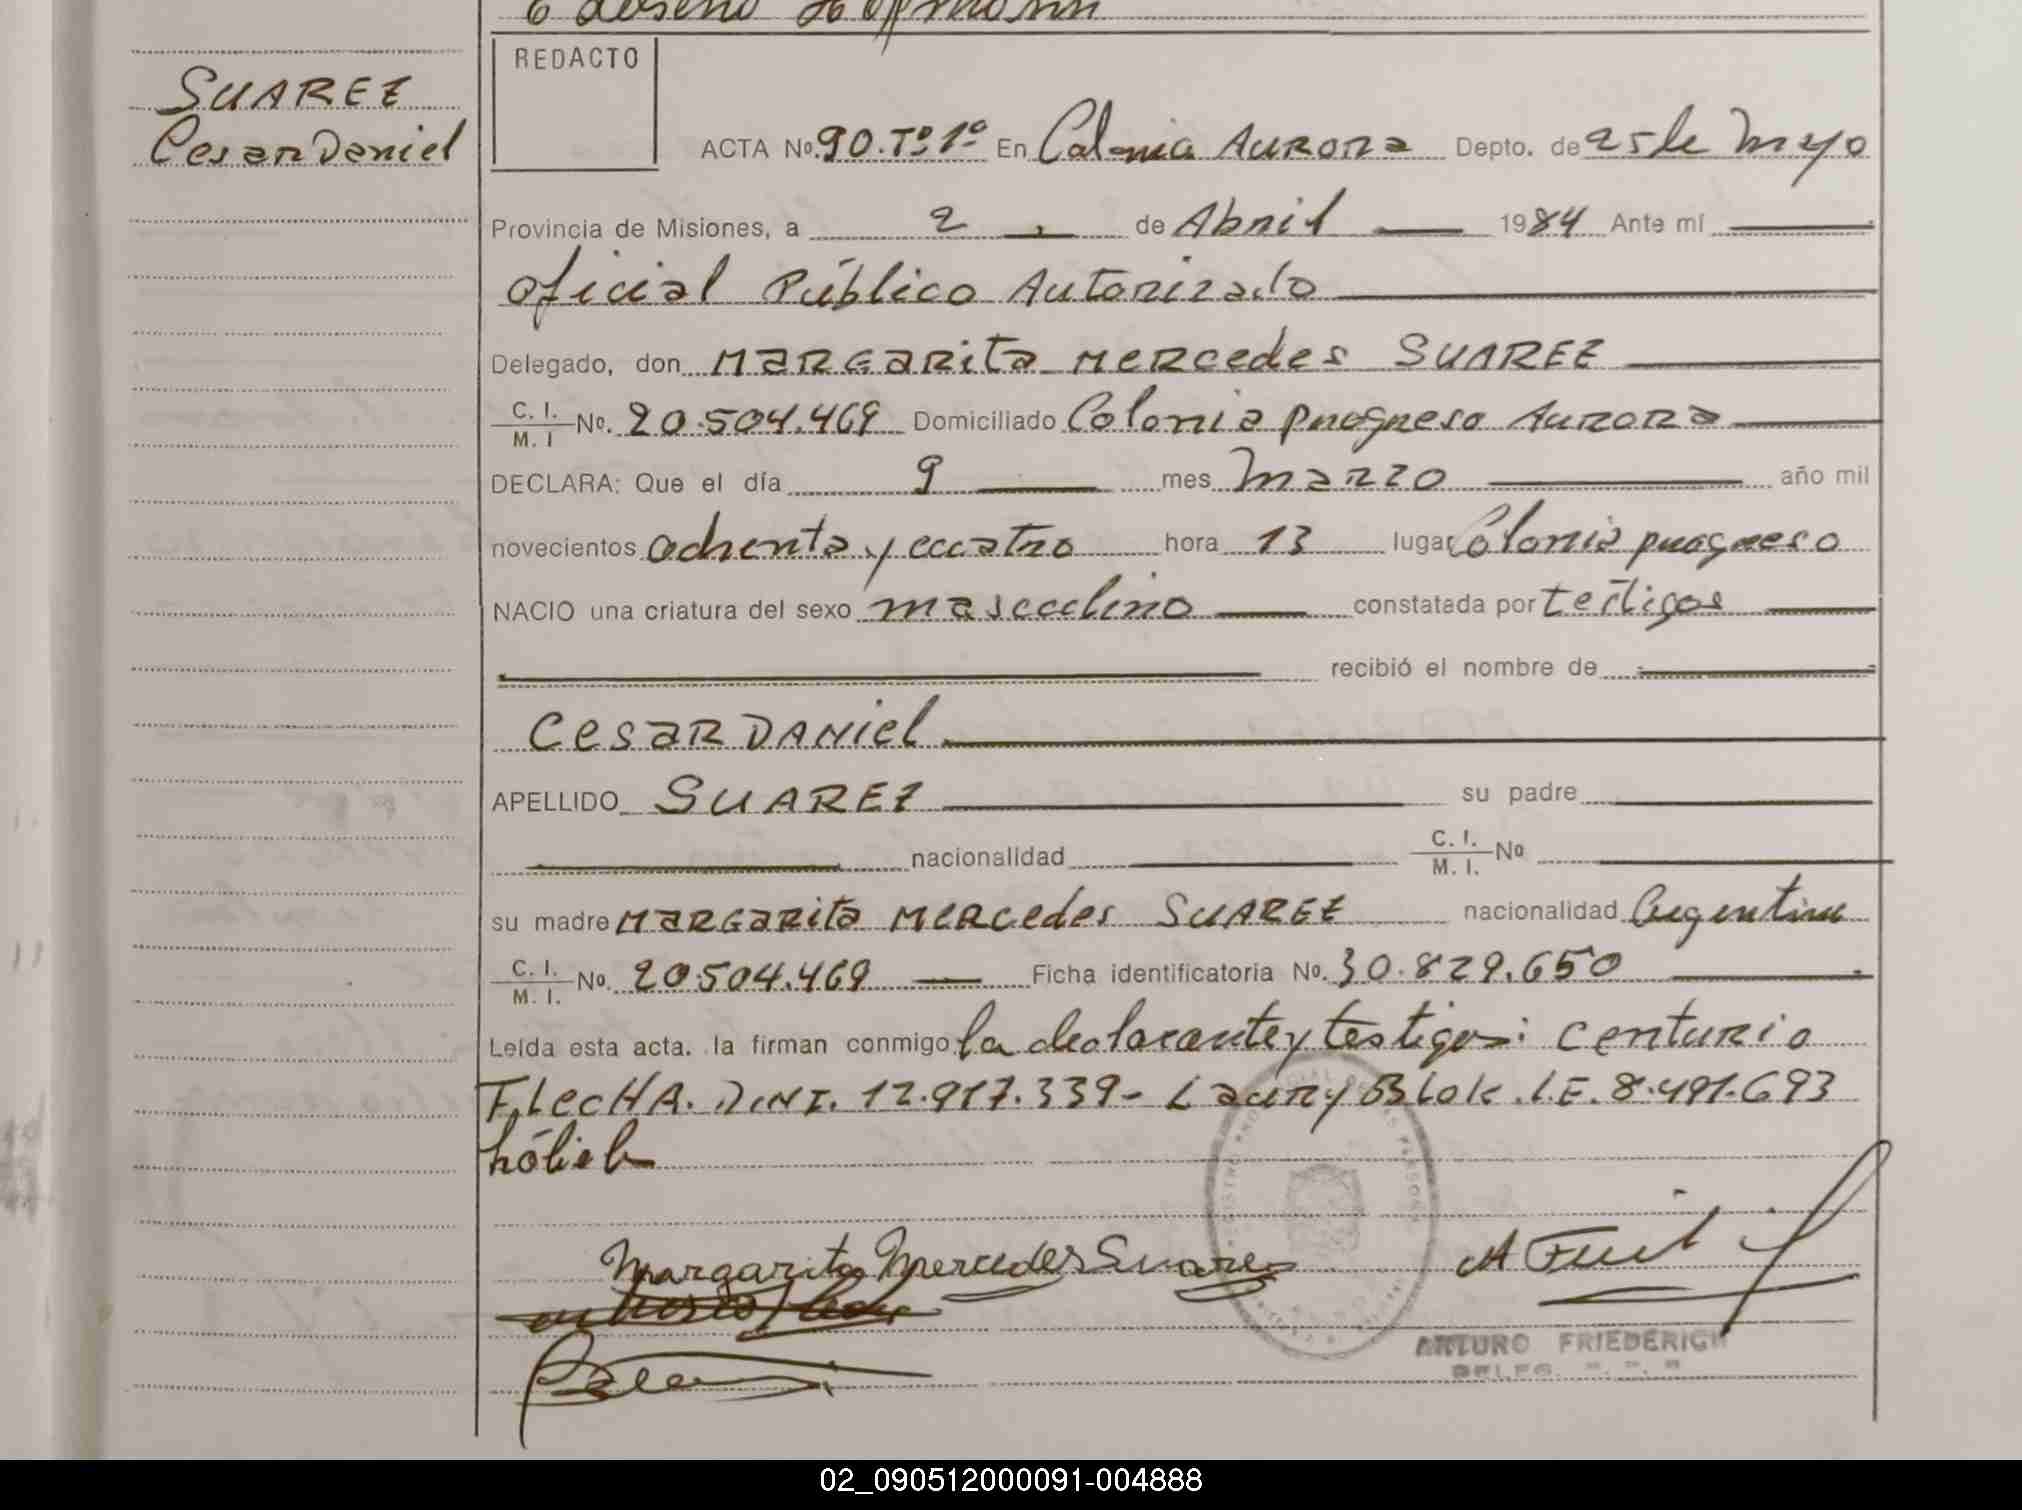 SUAREZ
Cesar Daniel
REDACTO
ACTA No. 90.Tº1º En Colonia Aurora Depto. de 25 de Mayo
Provincia de Misiones, a 2 de Abril 1984 Ante mí
Oficial Público Autorizado
Delegado, don MARGARita MERCedes SUAREZ
C. I. / M. I No. 20.504.469 Domiciliado Colonia progreso AURORA
DECLARA: Que el día 9 mes Marzo año mil
novecientos ochenta y cuatro hora 13 lugar Colonia progreso
NACIO una criatura del sexo masculino constatada por testigos
recibió el nombre de
CesaR DANiel
APELLIDO SUAREZ su padre
nacionalidad C. I. / M. I. No
su madre MARGARita MERCedes SUAREZ nacionalidad Argentina
C. I. / M. I. No. 20.504.469 Ficha identificatoria No. 30.829.650
Leída esta acta. la firman conmigo la declarante y testigos: Centurio
FLecHA. D.N.I. 12.917.339- Laury Blok .L.E. 8.491.693
hábiles
Margarita Mercedes Suarez
ARTURO FRIEDERICH
DELEG.
02_090512000091-004888